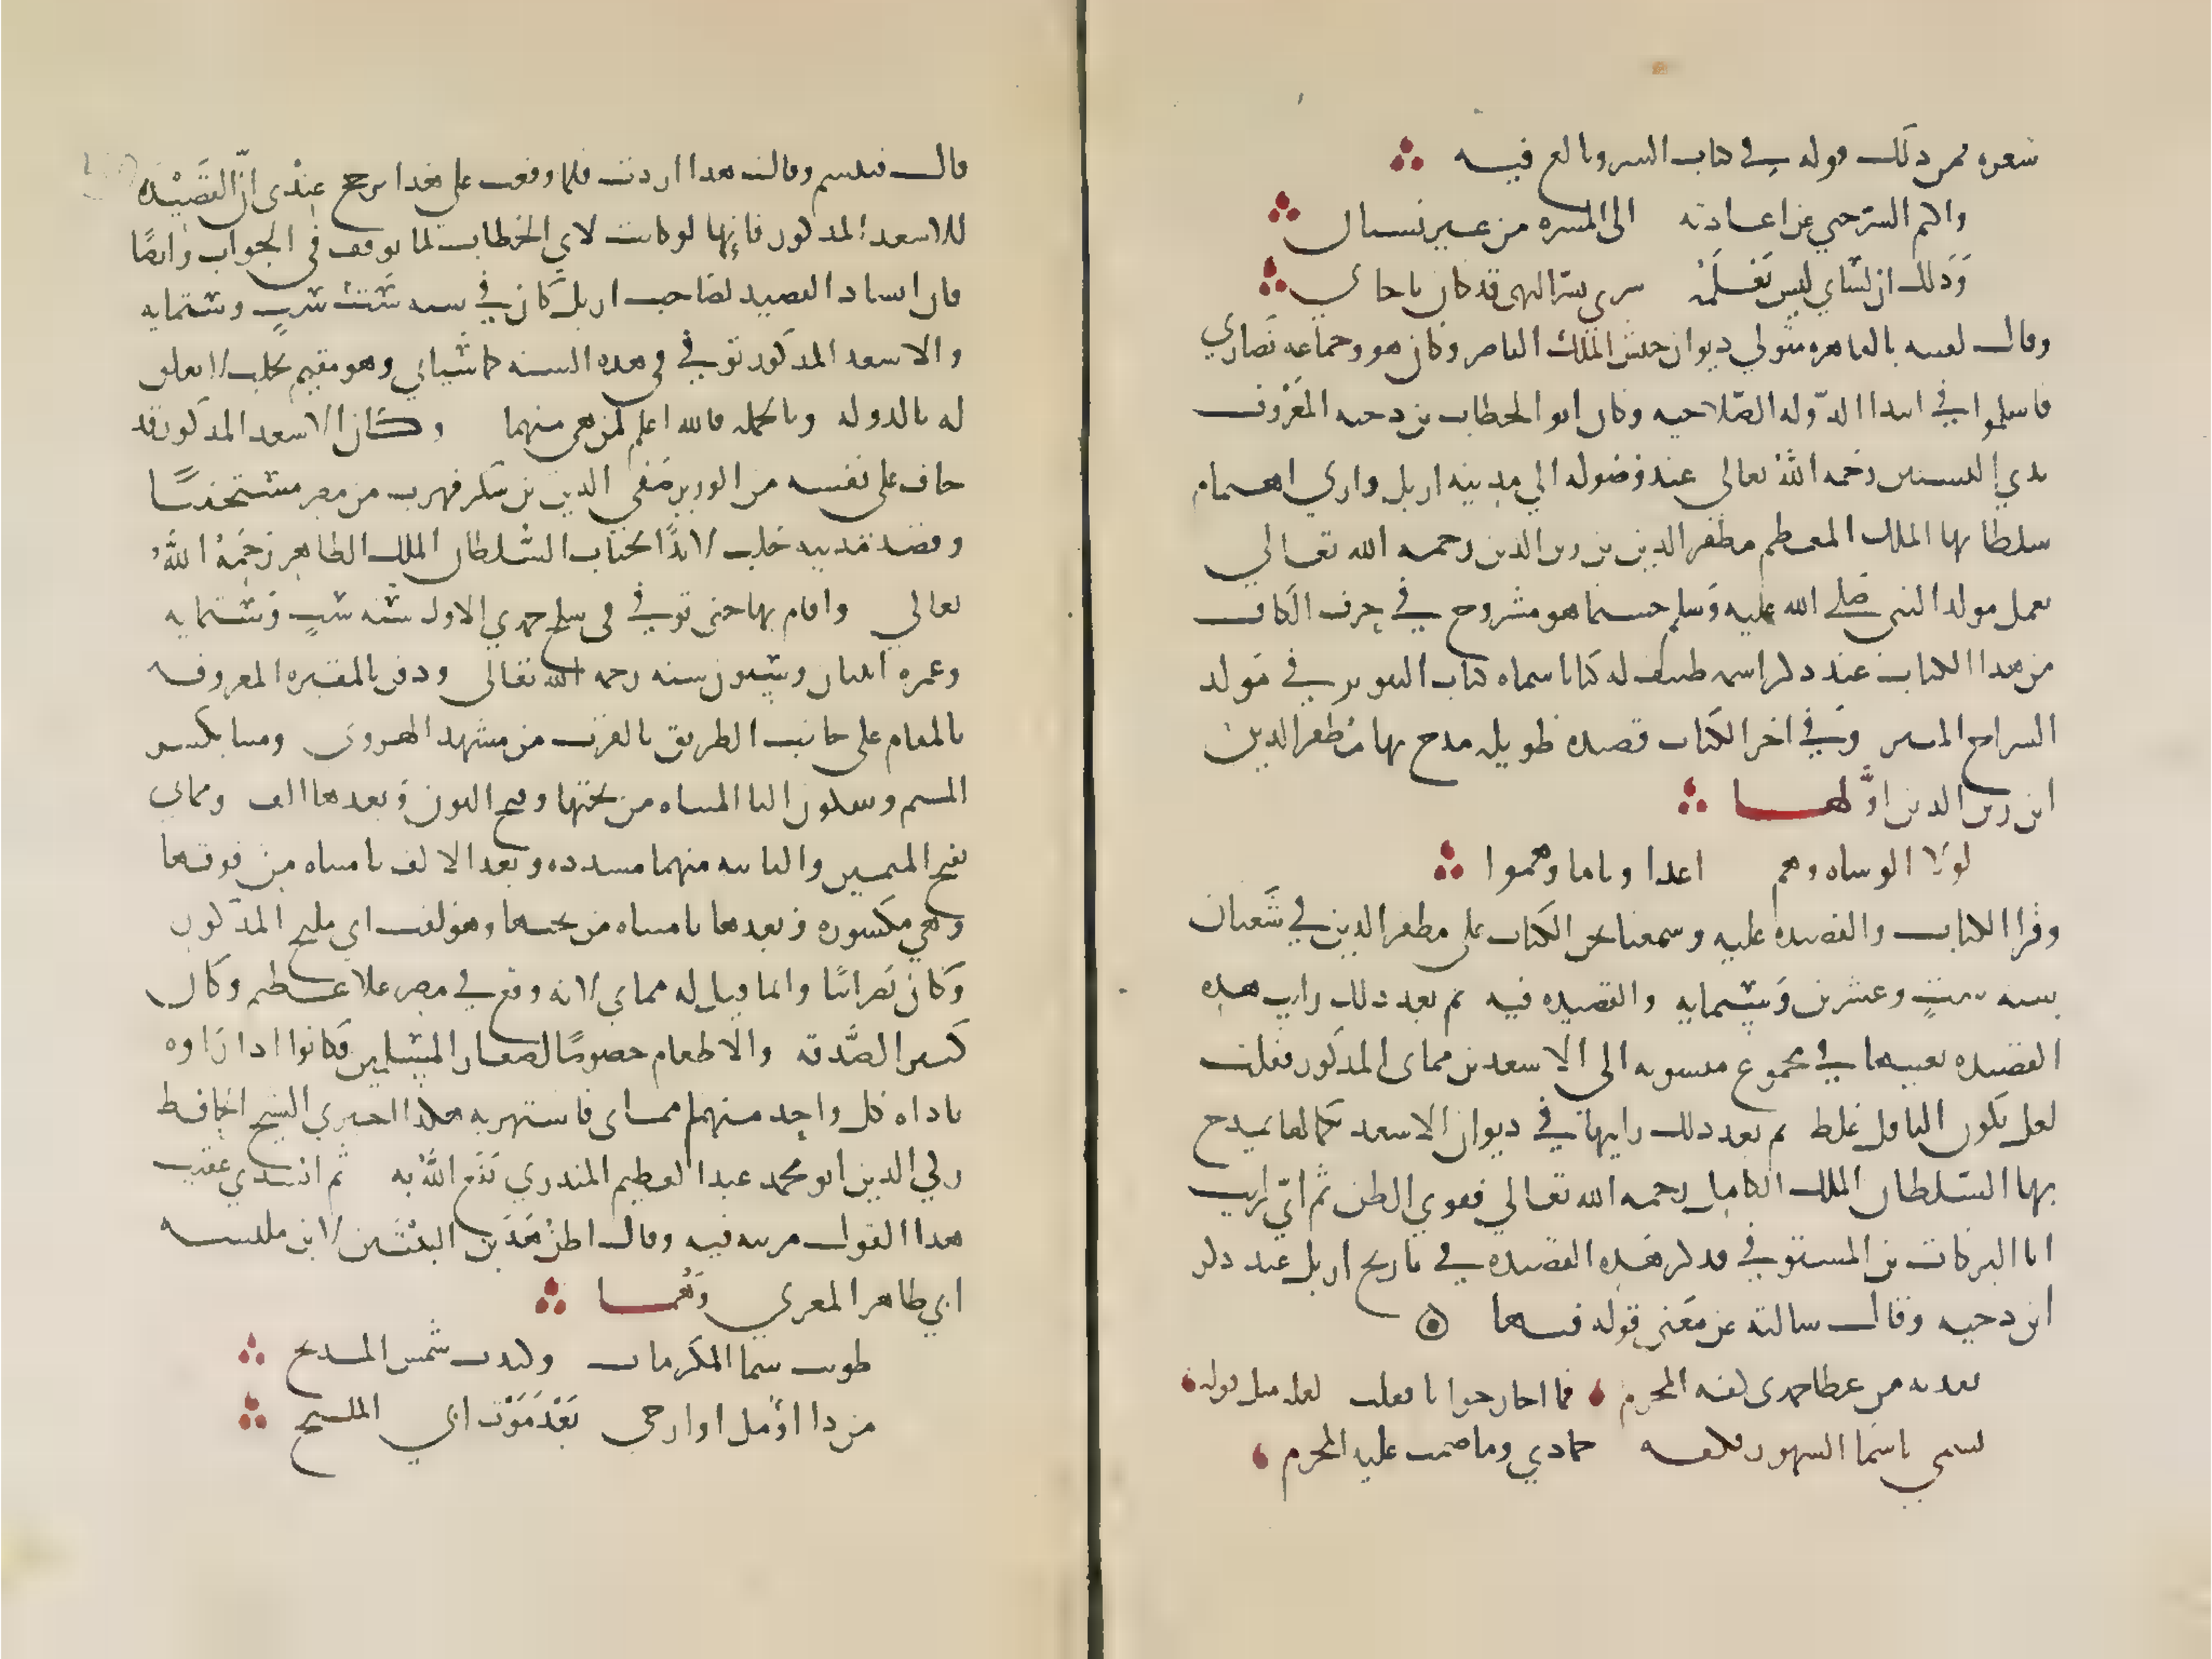 شعره فمن ذلك قوله في كتاب السر وبالغ فيه
واكتم السر حتى عن اعادته الى المسره من غير نسيان
وذلك ان لساني ليس يعلمه سري بسر الذي قد كان ناجاني
وقال لقيته بالقاهره متولي ديوان جيش الملك الناصر وكان هو وجماعه نصارى
فاسلموا في ابتدا الدوله الصلاحيه وكان ابو الخطاب بن دحيه المعروف
بذي النسبين رحمه الله تعالى عند وصوله الى مدينه اربل وراى اهتمام
سلطانها الملك المعظم مظفر الدين بن زين الدين رحمه الله تعالى
بعمل مولد النبي صلى الله عليه وسلم حسبما هو مشروح في حرف الكاف
من هذا الكتاب عند ذكر اسمه صنف له كتابا سماه كتاب التنوير في مولد
السراج المنير وفي اخر الكتاب قصيده طويله مدح بها مظفر الدين
ابن زين الدين اولها
لولا الوشاه وهم اعدا ونا ما وهموا
وقرا الكتاب والقصيده عليه وسمعنا نحن الكتاب على مظفر الدين في شعبان
سنه ست وعشرين وستمايه والقصيده فيه ثم بعد ذلك رايت هذه
القصيده بعينها في مجموع منسوبه الى الاسعد بن مماتي المذكور فقلت
لعل يكون الناقل غلط ثم بعد ذلك رايتها في ديوان الاسعد بكمالها يمدح
بها السلطان الملك الكامل رحمه الله تعالى فقوي الظن ثم اني رايت
ابا البركات بن المستوفي قد ذكر هذه القصيده في تاريخ اربل عند ذكر
ابن دحيه وقال سالته عن معنى قوله فيها
تفديه من عطا جمدى كفه المحرم فما احار جوابا فقلت لعله مثل قوله
تسمى باسما الشهور فكفه جمادي وما ضمت عليه المحرم
قال فتبسم وقال هذا اردت فلما وقفت على هذا ترجح عندى ان القصيده
للاسعد المذكور فانها لو كانت لابي الخطاب لما توقف في الجواب وايضا
فان انشاد القصيد لصاحب اربل كان في سنه ست وستمايه
والاسعد المذكور توفي في هذه السنه كما سياتي وهو مقيم بحلب لا تعلق
له بالدوله وبالجمله فالله اعلم لمن هي منهما وكان الاسعد المذكور قد
خاف على نفسه من الوزير صفي الدين بن شكر فهرب من مصر مستخفيا
وقصد مدينه حلب لائذا بجناب السلطان الملك الظاهر رحمه الله
تعالى واقام بها حتى توفي في سلخ جمدي الاولى سنه ست وستمايه
وعمره اثنان وستون سنه رحمه الله تعالى ودفن بالمقبره المعروفه
بالمقام على جانب الطريق بالقرب من مشهد الهروى ومينا بكسر
الميم وسكون اليا المثناه من تحتها وفتح النون وبعدها الف ومماتي
بفتح الميمين والثانيه منهما مشدده وبعد الالف تا مثناه من فوقها
وهي مكسوره وبعدها يا مثناه من تحتها وهو لقب ابي مليح المذكور
وكان نصرانيا وانما قيل له مماتي لانه وقع في مصر غلا عظيم وكان
كثير الصدقه والاطعام خصوصا لصغار المسلمين فكانوا اذا راوه
ناداه كل واحد منهم مماتى فاشتهر به هكذا اخبرني الشيخ الحافظ
زكي الدين ابو محمد عبد العظيم المنذري نفع الله به ثم انشدي عقيب
هذا القول مرثيه فيه وقال اظن هذين البيتين لابن مكنسه
ابي طاهر المغربي وهما
طويت سما المكرمات وكورت شمس المديح
من ذا اؤمل او ارجى بعد موت ابي المليح